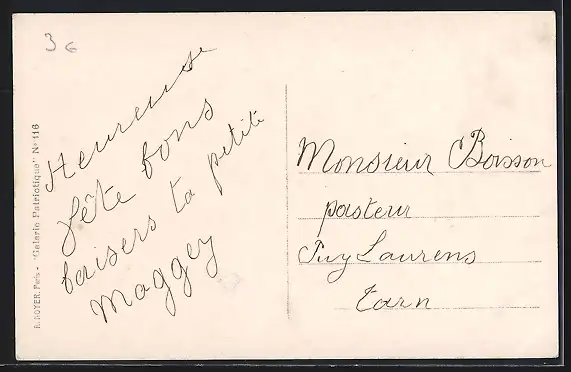 3 €
Heureuse
fête bons
baisers ta petite
Maggey
Monsieur Boisson
pasteur
Puy Laurens
Tarn
A. NOYER, Paris - "Galerie Patriotique" N° 116